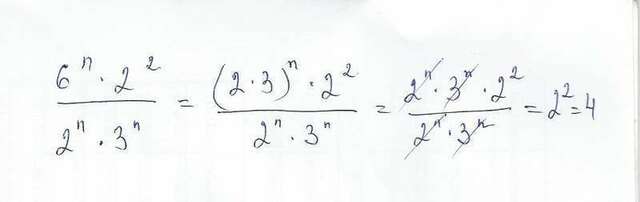 6^n · 2^2 / 2^n · 3^n = (2 · 3)^n · 2^2 / 2^n · 3^n = 2^n · 3^n · 2^2 / 2^n · 3^n = 2^2 = 4